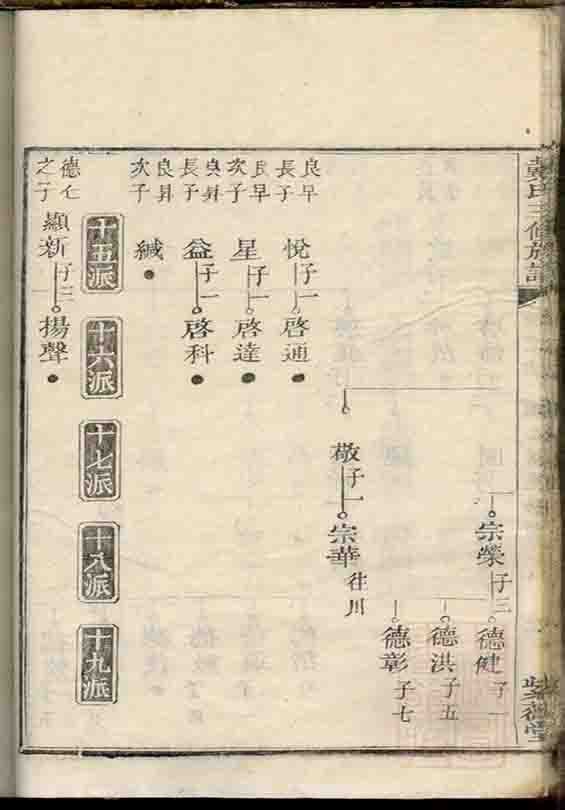 戴氏三修族譜
宗榮 子三
德健 子一
德洪 子五
德彰 子七
敬 子一
宗華 往川
良早長子
悅 子一
啓通
良早次子
星 子一
啓達
良昇長子
益 子一
啓科
良昇次子
緘
十五派
十六派
十七派
十八派
十九派
德仁之子
顯新 子三
揚聲